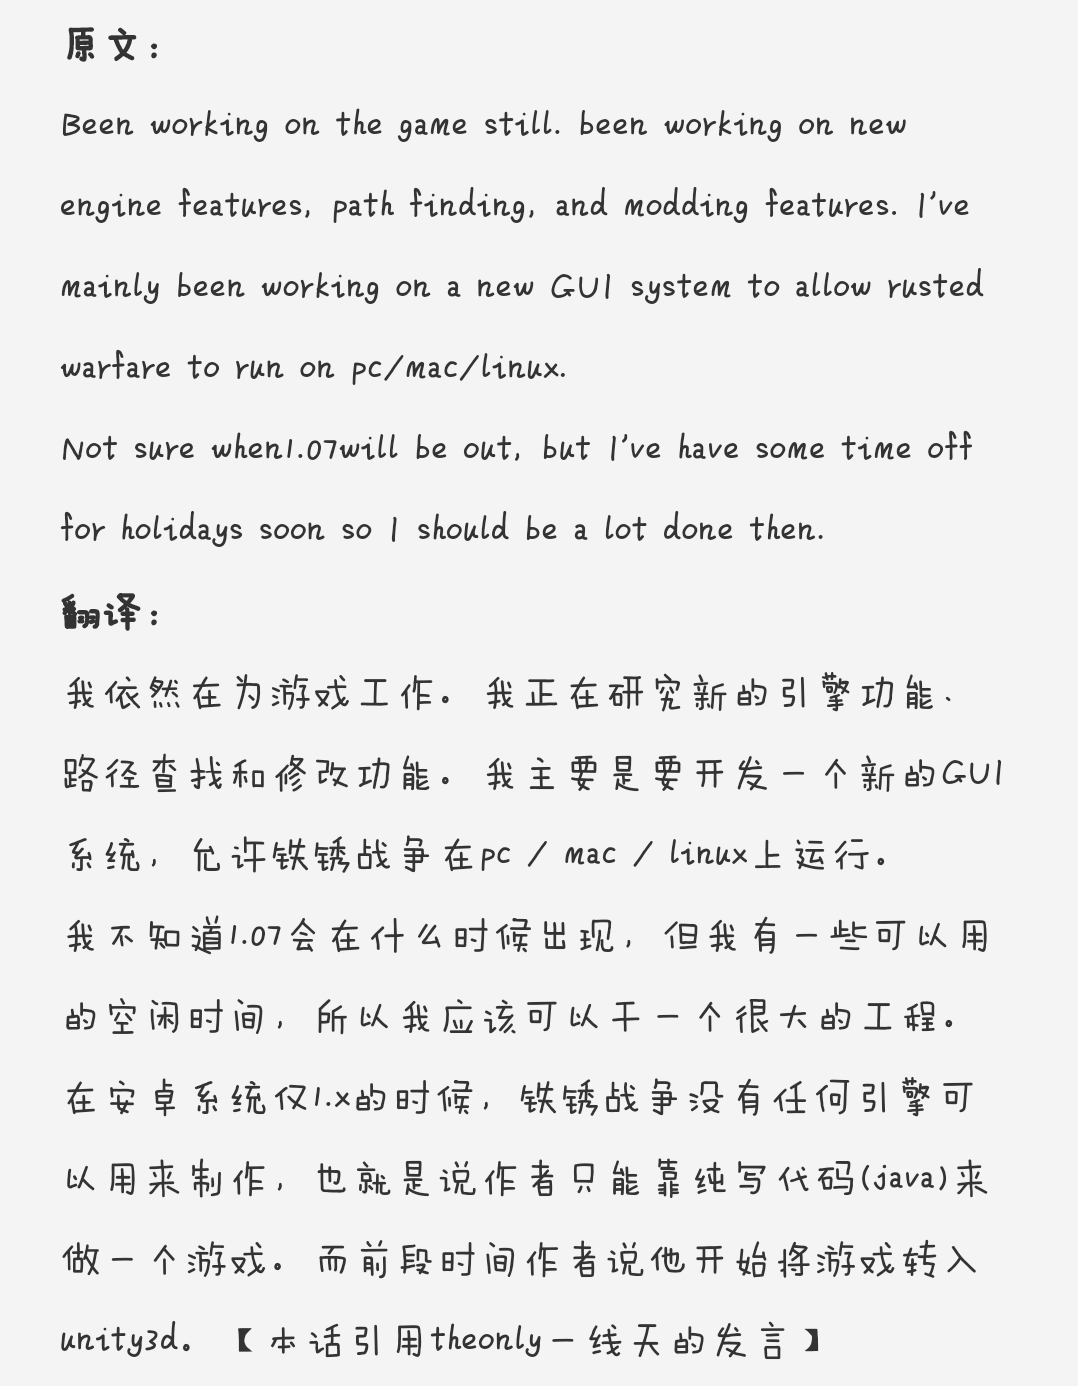 原文：
Been working on the game still. been working on new
engine features, path finding, and modding features. I've
mainly been working on a new GUI system to allow rusted
warfare to run on pc/mac/linux.
Not sure when1.07will be out, but I've have some time off
for holidays soon so I should be a lot done then.
翻译：
我依然在为游戏工作。 我正在研究新的引擎功能、
路径查找和修改功能。 我主要是要开发一个新的GUI
系统，允许铁锈战争在pc / mac / linux上运行。
我不知道1.07会在什么时候出现，但我有一些可以用
的空闲时间，所以我应该可以干一个很大的工程。
在安卓系统仅1.x的时候，铁锈战争没有任何引擎可
以用来制作，也就是说作者只能靠纯写代码(java)来
做一个游戏。 而前段时间作者说他开始将游戏转入
unity3d。 【本话引用theonly一线天的发言】